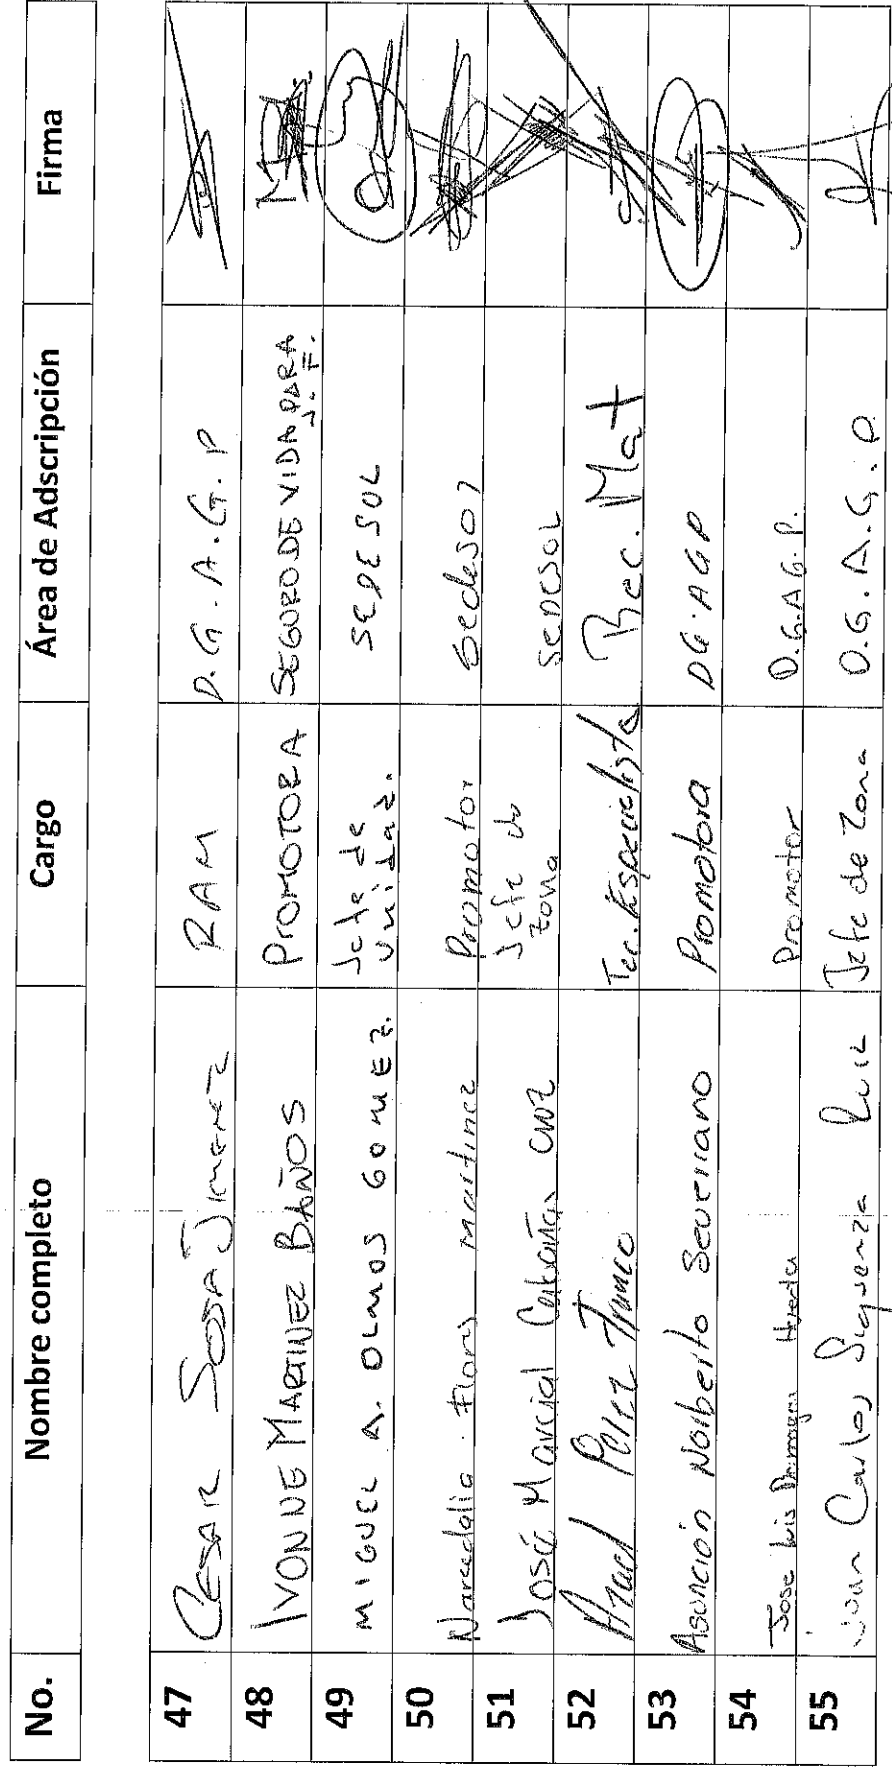 No. Nombre completo Cargo Área de Adscripción Firma
47 CESAR SOSA JIMENEZ RAM D.G.A.G.P
48 IVONNE MARTINEZ BAÑOS PROMOTORA SEGURO DE VIDA PARA J. F.
49 MIGUEL A. OLMOS GOMEZ. Jefe de Unidad. SEDESOL
50 Flores martinez Promotor Sedesol
51 José Marcial Cabañas Jefe de zona SEDESOL
52 Perez Tec. Especialista Rec. Mat
53 Asunción Norberto Severiano Promotora DG.AGP
54 Jose Luis Promotor D.G.AG.P.
55 Juan Carlos Sigüenza Ruiz Jefe de Zona D.G.A.G.P.